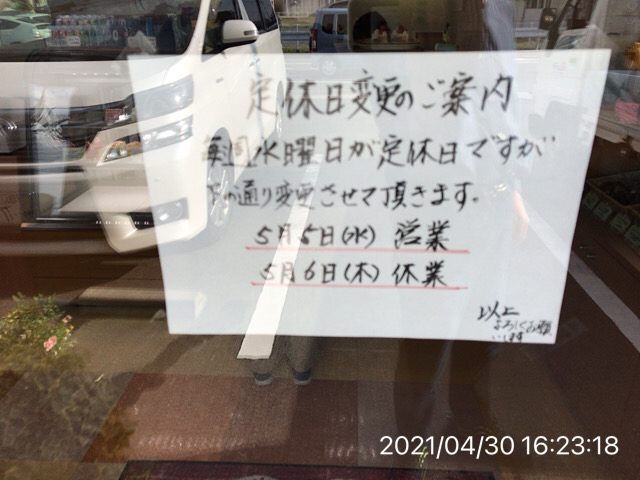 定休日変更のご案内
毎週水曜日が定休日ですが
下の通り変更させて頂きます。
5月5日(水) 営業
5月6日(木) 休業
以上
よろしくお願
いします
2021/04/30 16:23:18